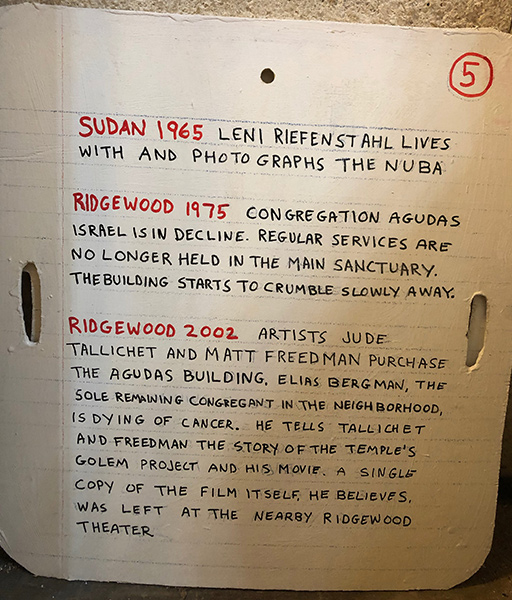 5
SUDAN 1965 LENI RIEFENSTAHL LIVES
WITH AND PHOTOGRAPHS THE NUBA
RIDGEWOOD 1975 CONGREGATION AGUDAS
ISRAEL IS IN DECLINE. REGULAR SERVICES ARE
NO LONGER HELD IN THE MAIN SANCTUARY.
THE BUILDING STARTS TO CRUMBLE SLOWLY AWAY.
RIDGEWOOD 2002 ARTISTS JUDE
TALLICHET AND MATT FREEDMAN PURCHASE
THE AGUDAS BUILDING. ELIAS BERGMAN, THE
SOLE REMAINING CONGREGANT IN THE NEIGHBORHOOD,
IS DYING OF CANCER. HE TELLS TALLICHET
AND FREEDMAN THE STORY OF THE TEMPLE'S
GOLEM PROJECT AND HIS MOVIE. A SINGLE
COPY OF THE FILM ITSELF, HE BELIEVES,
WAS LEFT AT THE NEARBY RIDGEWOOD
THEATER